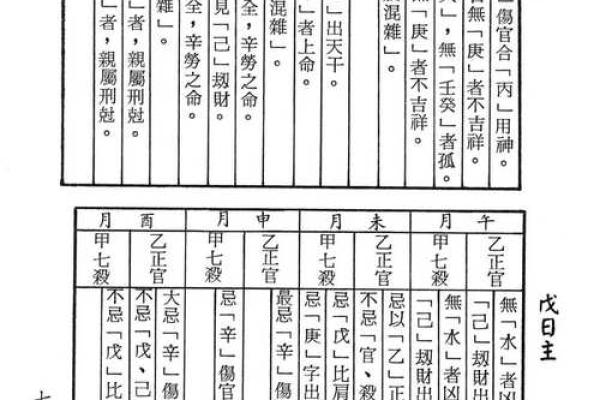 」傷官合「丙」用神。
者無「庚」者不吉祥。
」，無「壬癸」者孤。
無「庚」者不吉祥。
混雜」。
」出天干。
」者上命。
混雜」。
全，辛勞之命。
見「己」刼財。
全，辛勞之命。
雜」。
」者，親屬刑尅。
」者，親屬刑尅。
戊日主
午月
乙正官
無「水」者凶
「己」刼財出
甲七殺
無「水」者凶
「己」刼財出
未月
乙正官
忌以「乙」正
不忌「官、殺
甲七殺
忌「戊」比肩
忌「庚」字出
申月
乙正官
最忌「辛」傷
甲七殺
忌「辛」傷官
酉月
乙正官
大忌「辛」傷
不忌「戊、己
甲七殺
不忌「戊」比
七